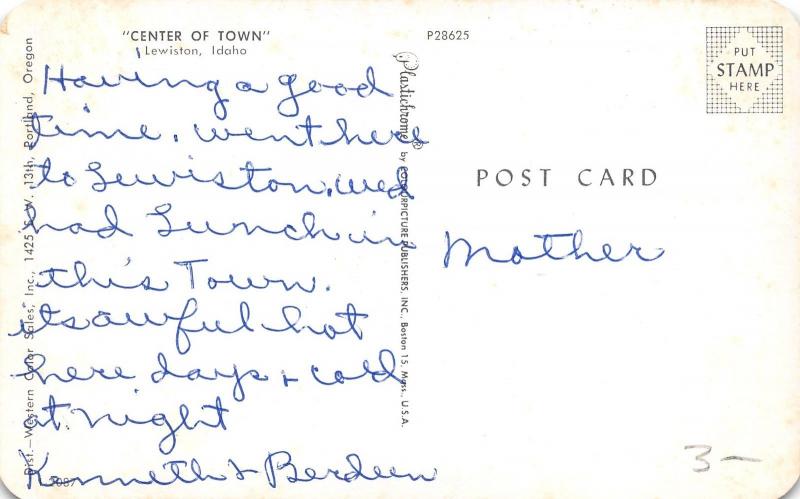 "CENTER OF TOWN"
Lewiston, Idaho
P28625
PUT
STAMP
HERE
POST CARD
Having a good
time. went here
to Lewiston. wed
had Lunch in
this Town.
its awful hot
here days + cold
at night
Kenneth + Berdeen
Mother
Dist.—Western Color Sales, Inc., 1425 S. W. 13th, Portland, Oregon
Plastichrome® by COLORPICTURE PUBLISHERS, INC., Boston 15, Mass., U.S.A.
3—